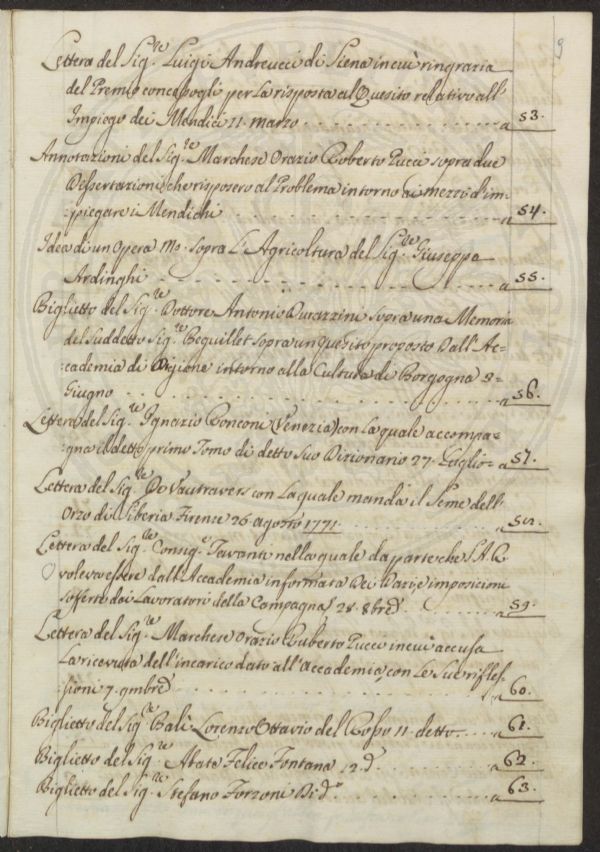 9
Lettera del Sig.re Luigi Andreucci di Siena in cui ringrazia
del Premio concessogli per la risposta al Quesito relativo all'
Impiego dei Mendici 11. marzo . . . . . . . a 53.
Annotazioni del Sig.re Marchese Orazio Roberto Pucci sopra due
Dissertazioni, che risposero al Problema intorno ai mezzi d'im=
=piegare i Mendichi . . . . . . . a 54.
Idea di un Opera Ms. sopra L'Agricoltura del Sig.re Giuseppe
Ardinghi . . . . . . . a 55.
Biglietto del Sig.re Dottore Antonio Durazzini sopra una Memoria
del Suddetto Sig.re Beguillet sopra un Quesito proposto dall'Ac=
=cademia di Digione intorno alla Cultura di Borgogna 8
Giugno . . . . . . . a 56.
Lettera del Sig.re Ignazio Ronconi (Venezia) con la quale accompa=
=gna il detto primo Tomo di detto suo Dizionario 27. Luglio = a 57.
Lettera del Sig.re De Vautravers con la quale manda il Seme dell'
Orzo di Siberia Firenze 26. agosto 1771 . . . . . . . a
Lettera del Sig.re Consig.e Tavanti nella quale da parte che S.A.R.
voleva essere dall'Accademia informata dei Dazi, e imposizioni
sofferte dai Lavoratori della Campagna 28. 8bre . . . . . . . a 59.
Lettera del Sig.re Marchese Orazio Ruberto Pucci in cui accusa
La ricevuta dell'incarico dato all'Accademia con Le Sue rifles=
=sioni 7. 9mbre . . . . . . . a 60.
Biglietto del Sig.re Balì Lorenzo Ottavio del Rosso 11. detto . . . . a 61.
Biglietto del Sig.re Abate Felice Fontana 12. d.o . . . . . . . a 62.
Biglietto del Sig.re Stefano Forzoni Di d.o . . . . . . . a 63.